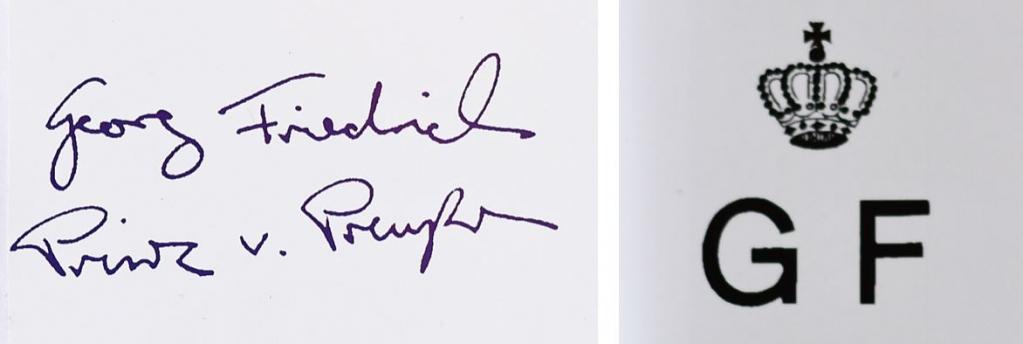 Georg Friedrich
Prinz v. Preußen
G F